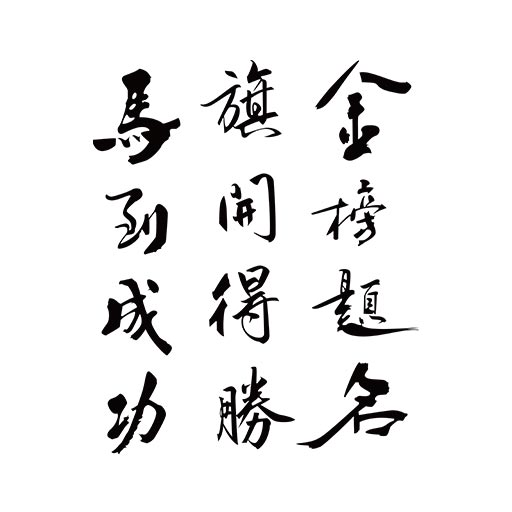 金榜題名
旗開得勝
馬到成功